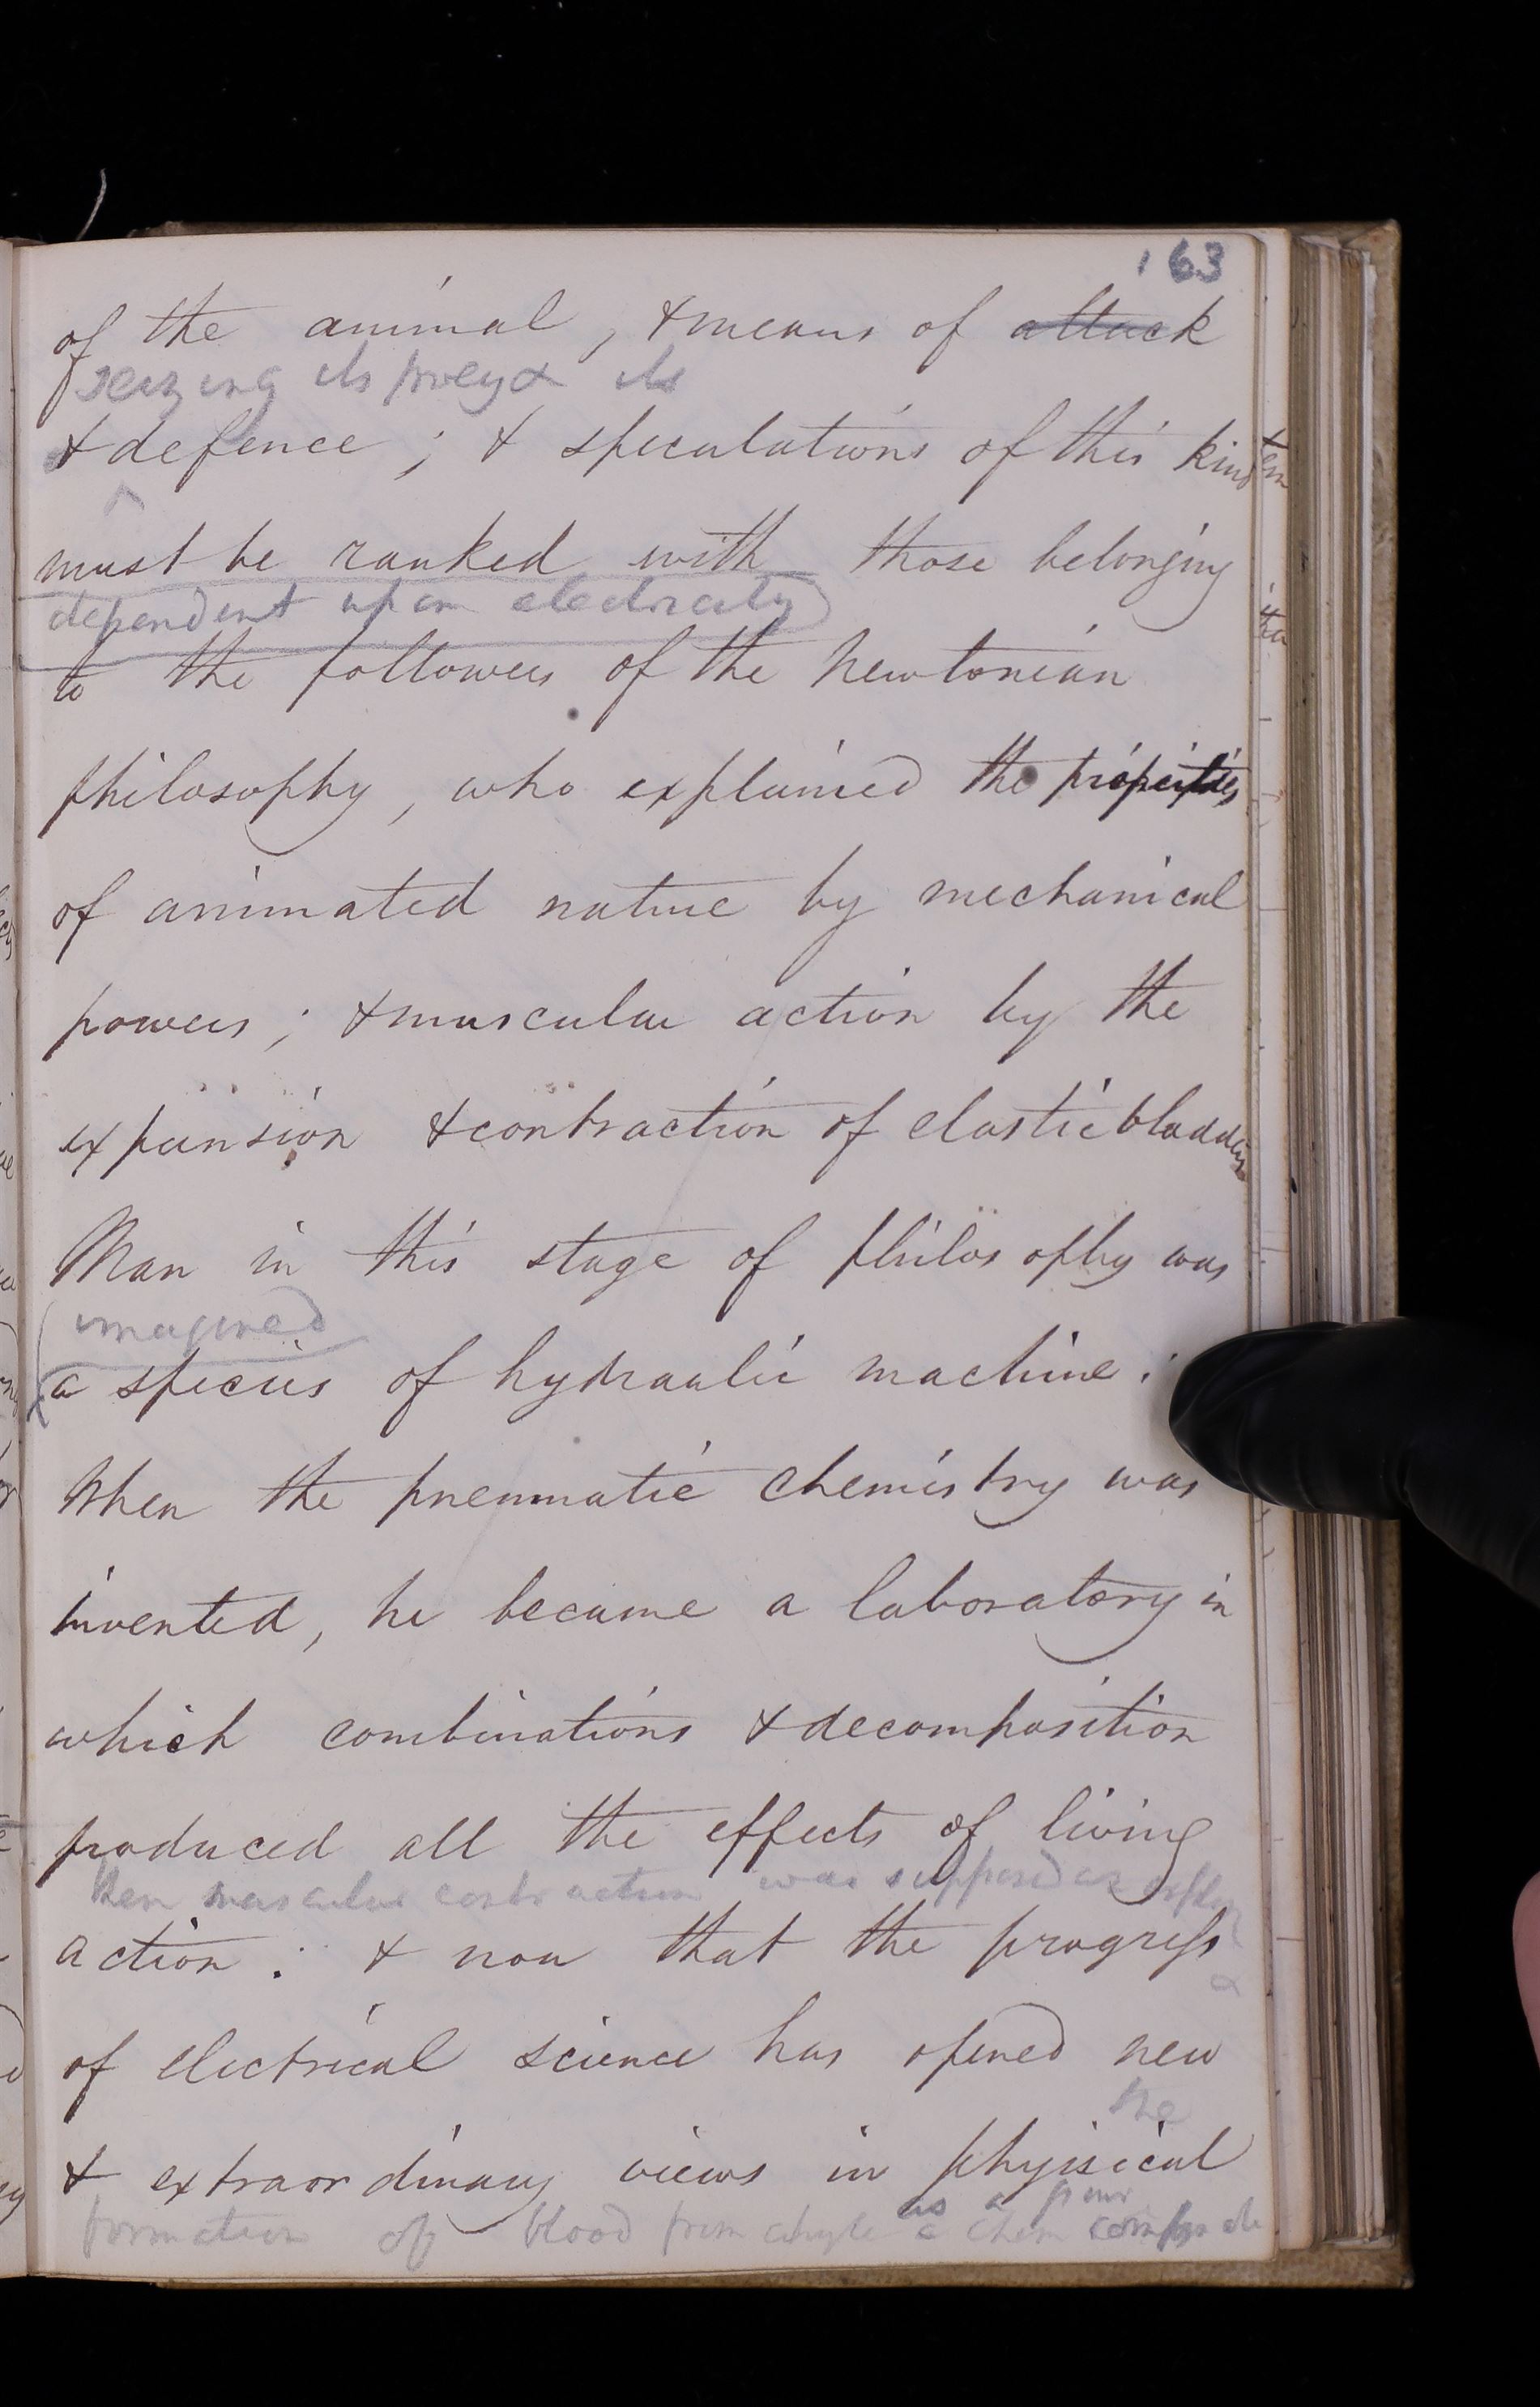 163
of the animal, & means of attack
seizing its prey & its
& defence; & speculations of this kind
must be ranked with those belonging
dependent upon electricity
to the followers of the Newtonian
philosophy, who explained the properties
of animated nature by mechanical
powers; & muscular action by the
expansion & contraction of elastic bladders
Man in this stage of philosophy was
imagined
a species of hydraulic machine:
When the pneumatic chemistry was
invented, he became a laboratory in
which combinations & decomposition
produced all the effects of living
then muscular contraction was supposed an
action: & now that the progress
&
of electrical science has opened new
the
& extraordinary views in physical
as a pure
formation of blood from chyle a chem